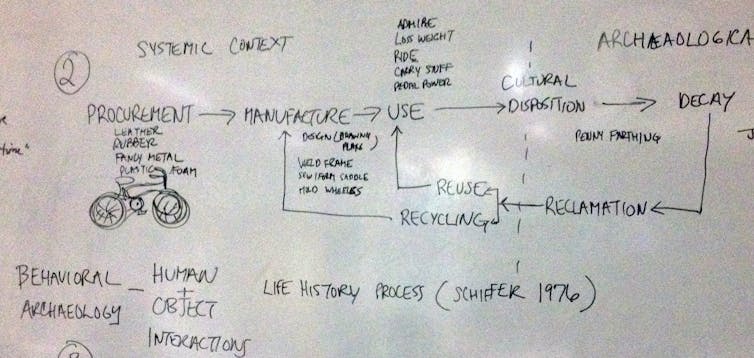 2
SYSTEMIC CONTEXT
ADMIRE
LOSS WEIGHT
RIDE
CARRY STUFF
PEDAL POWER
ARCHAEOLOGICA
PROCUREMENT → MANUFACTURE → USE → CULTURAL DISPOSITION → DECAY
LEATHER
RUBBER
FANCY METAL
PLASTIC FOAM
DESIGN (DRAWING PLANS)
WELD FRAME
SEW/FORM SADDLE
WHEELS
PENNY FARTHING
REUSE
RECYCLING
RECLAMATION
BEHAVIORAL ARCHAEOLOGY — HUMAN + OBJECT INTERACTIONS
LIFE HISTORY PROCESS (SCHIFFER 1976)